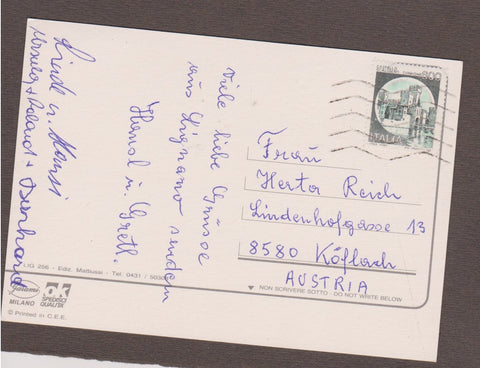 Viele liebe Grüsse
aus Lignano senden
Hansl u. Gretl.
Linde u. Hansi
Ursula + Roland + Bernhard
600
ITALIA
Frau
Herta Reich
Lindenhofgasse 13
8580 Köflach
AUSTRIA
NON SCRIVERE SOTTO - DO NOT WRITE BELOW
LIG 256 - Ediz. Mattiussi - Tel. 0431 /
MILANO
OK
SPEDISCI
QUALITÀ
© Printed in C.E.E.